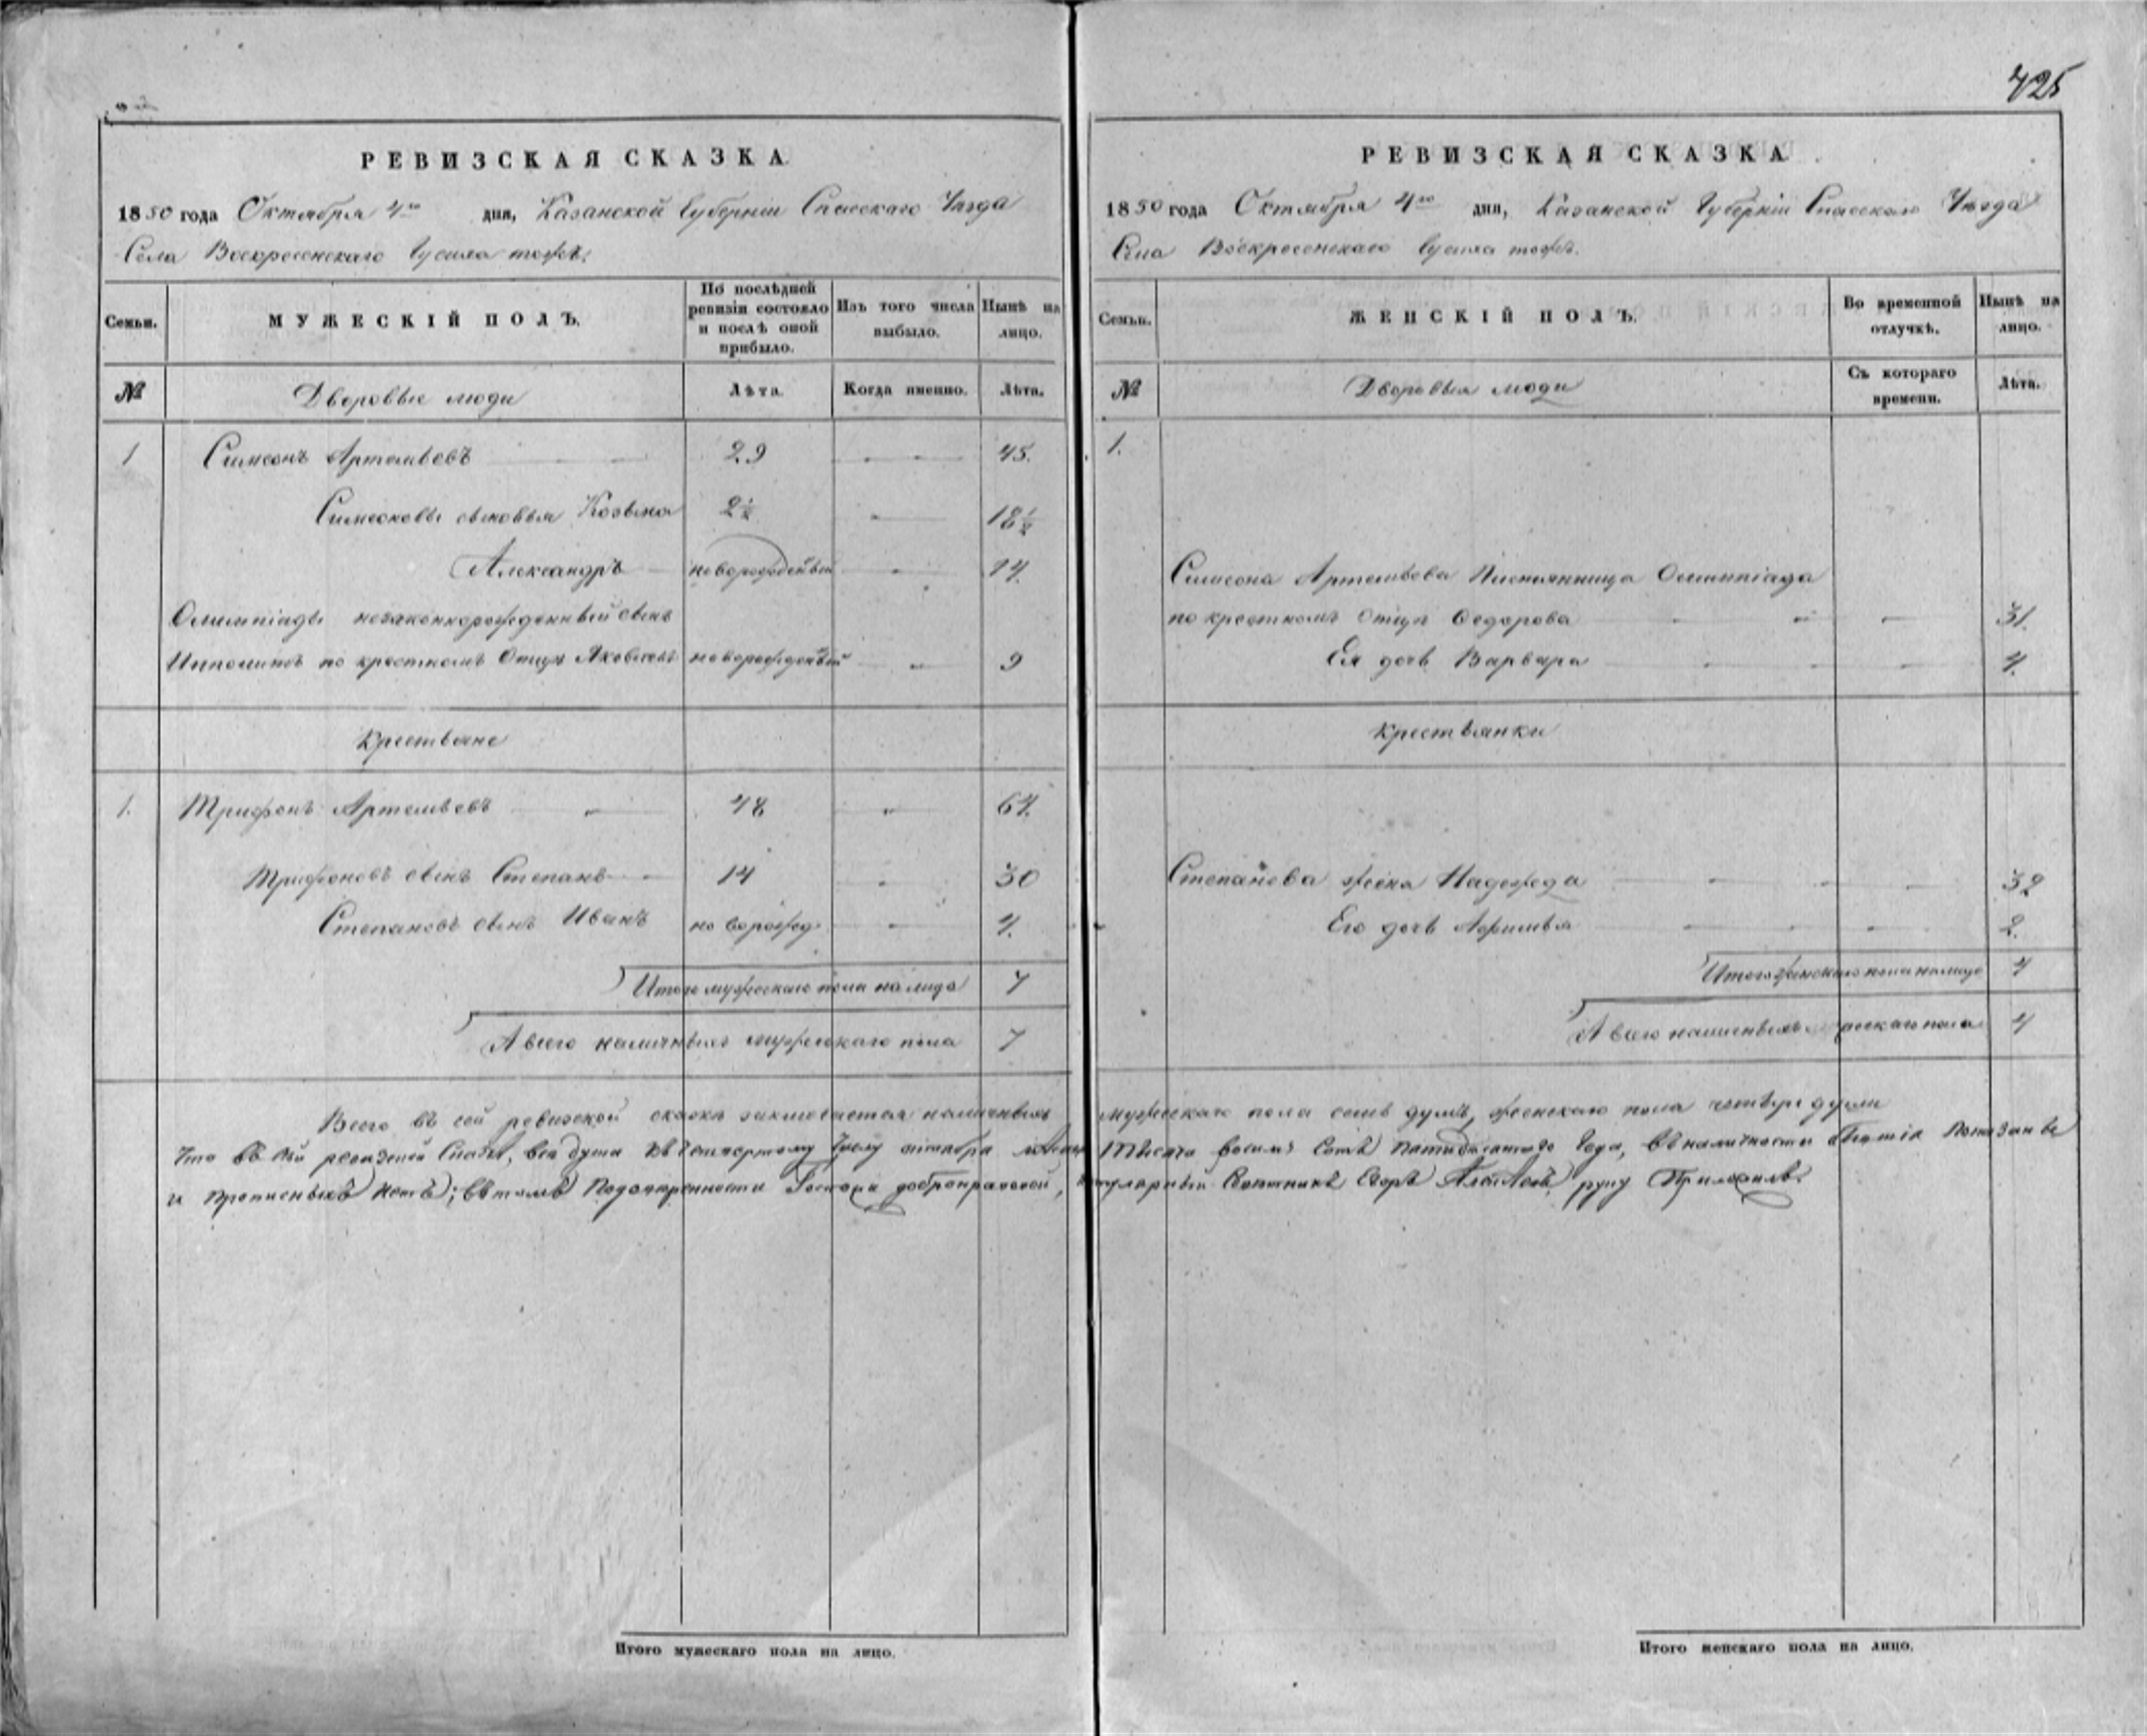 425
РЕВИЗСКАЯ СКАЗКА.
1850 года Октября 4го дня, Казанской Губерніи Спасскаго Уѣзда
Села Воскресенскаго тожъ.
Семьи.
МУЖЕСКІЙ ПОЛЪ.
По послѣдней ревизіи состояло и послѣ оной прибыло.
Изъ того числа выбыло.
Нынѣ на лицо.
№
Дворовые люди
Лѣта.
Когда именно.
Лѣта.
1 Симеонъ Артемьевъ 29 45.
Симеоновы сыновья Козьма 2½ 18½
Александръ новорожденный 14.
Олимпіады незаконнорожденный сынъ
по крестномъ Отцѣ Яковлевъ новорожденный 9
Крестьяне
1. Трифонъ Артемьевъ 48 64.
Трифоновъ сынъ Степанъ 14 30
Степановъ сынъ Иванъ новорожд. 4.
Итого мужескаго пола на лицо 7
А всего наличныхъ мужескаго пола 7
РЕВИЗСКАЯ СКАЗКА.
1850 года Октября 4го дня, Казанской Губерніи Спасскаго Уѣзда
Села Воскресенскаго тожъ.
Семьи.
ЖЕНСКІЙ ПОЛЪ.
Во временной отлучкѣ.
Нынѣ на лицо.
№
Дворовыя люди
Съ котораго времени.
Лѣта.
1.
Симеона Артемьева Олимпіада
по крестномъ Отцѣ Федорова 31.
Ея дочь Варвара 4.
Крестьянки
Степанова жена Надежда 32
Его дочь 2.
Итого женскаго пола на лицо 4
А всего наличныхъ женскаго пола 4
Всего въ сей ревизской сказкѣ заключается наличныхъ мужескаго пола семь душъ, женскаго пола четыре души
Что въ сей ревизской сказкѣ, все души къ четвертому числу октября тысяча восемь сотъ пятидесятаго года, въ наличности показаны
и прописныхъ нетъ; въ томъ руку приложилъ.
Итого мужескаго пола на лицо.
Итого женскаго пола на лицо.